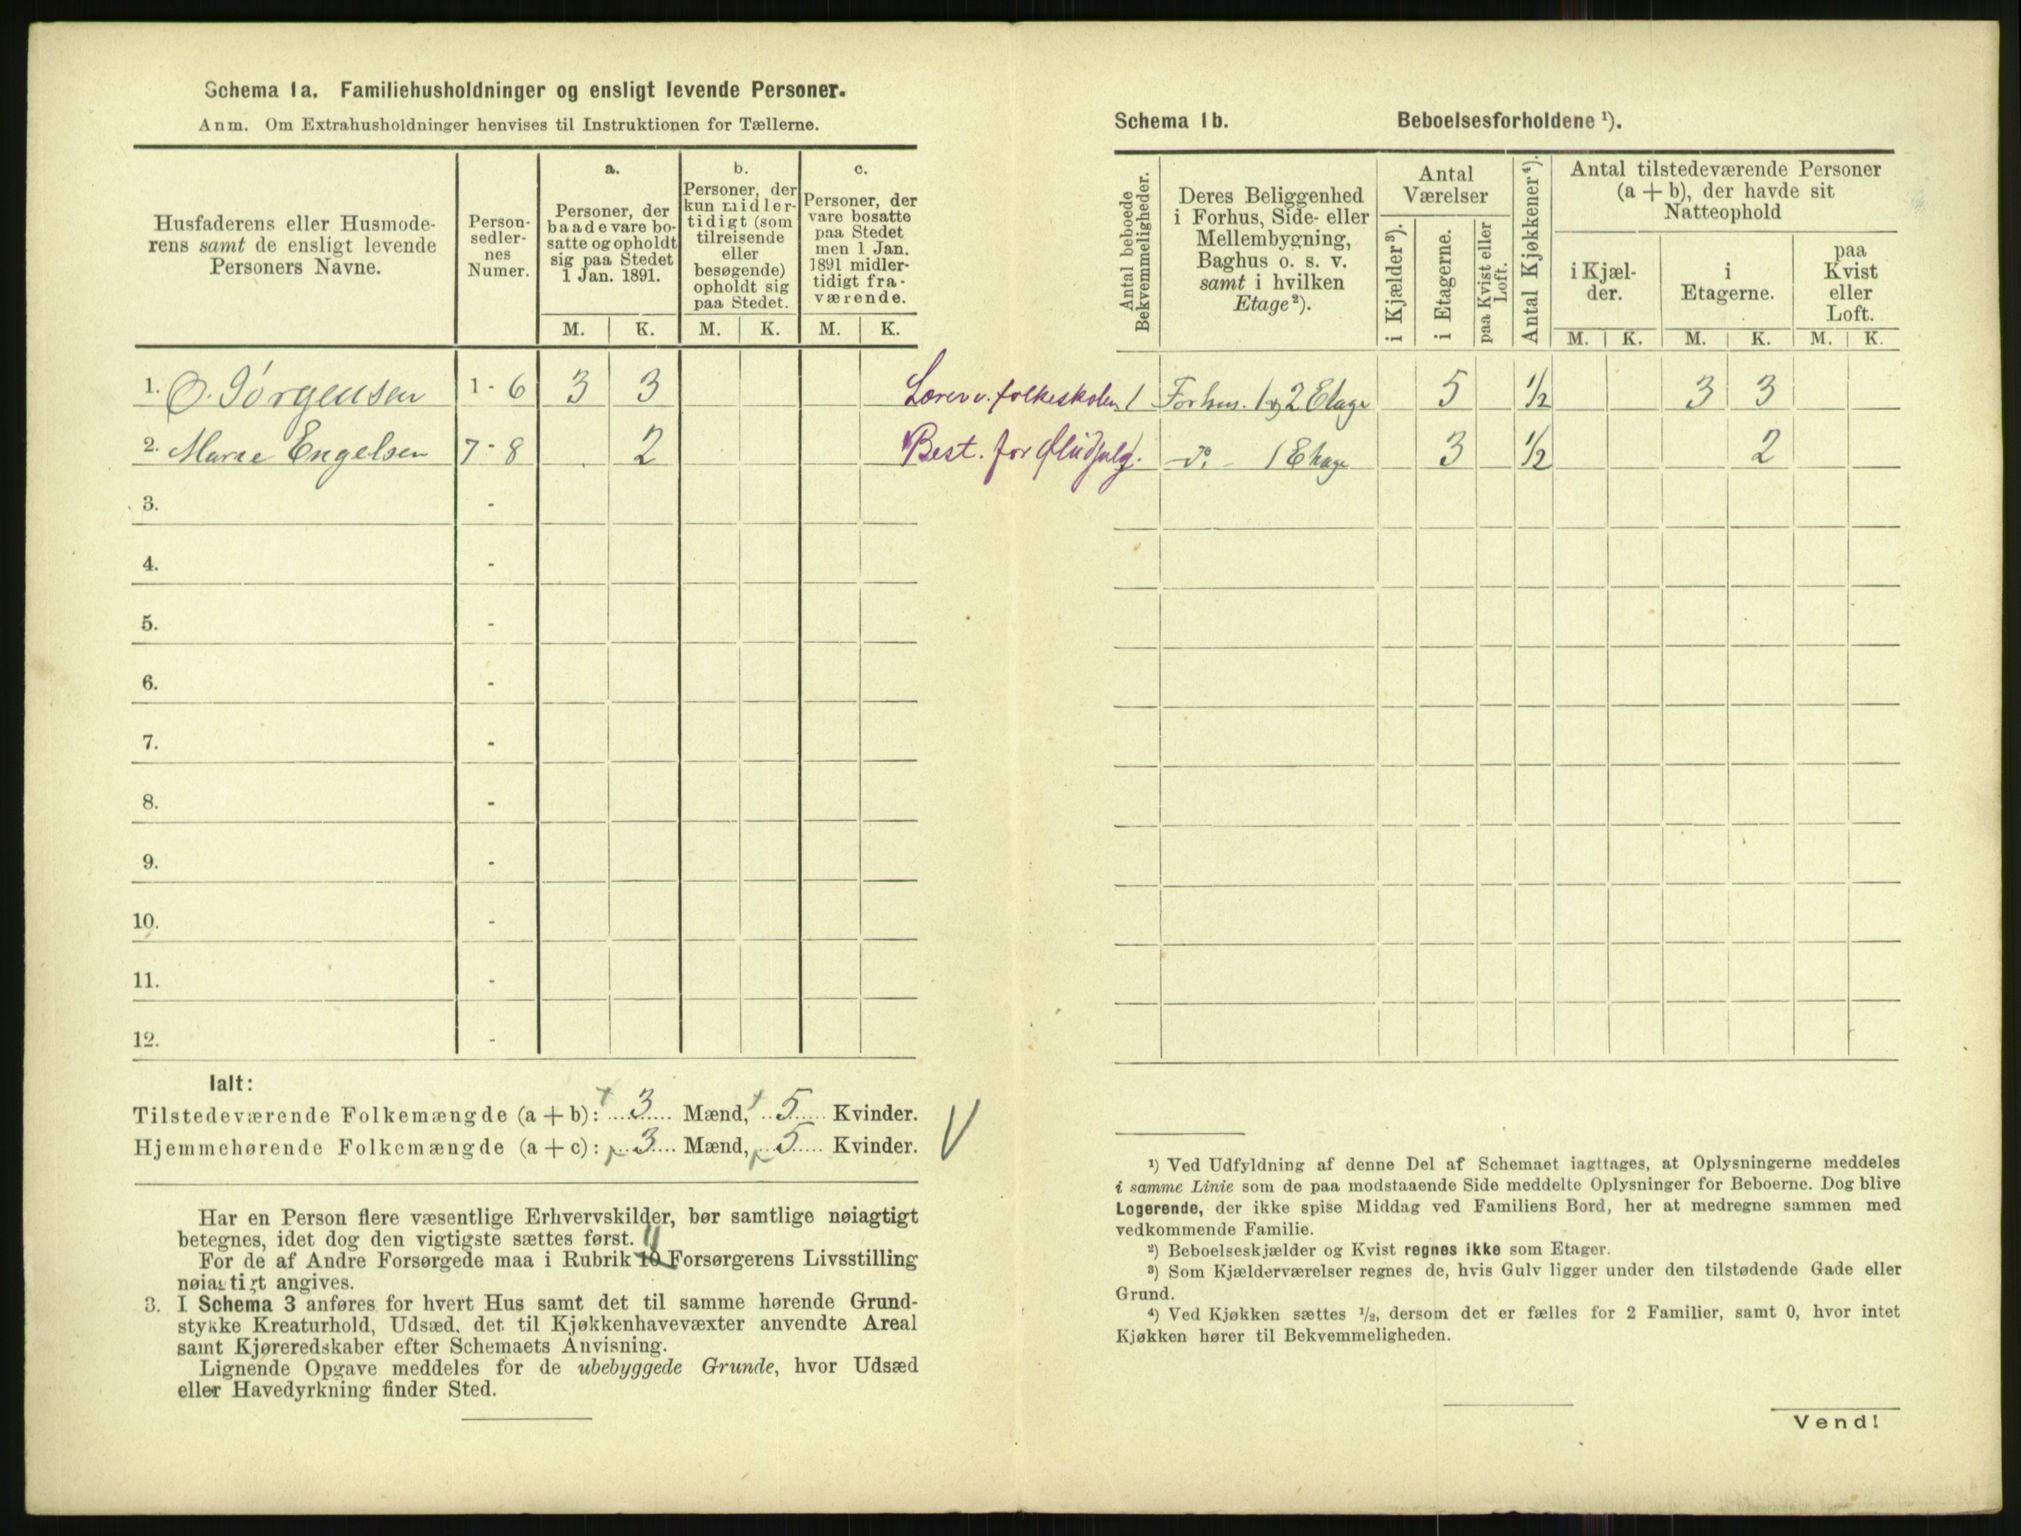 Schema 1a. Familiehusholdninger og ensligt levende Personer.
Anm. Om Extrahusholdninger henvises til Instruktionen for Tællerne.
Husfaderens eller Husmode-
rens samt de ensligt levende
Personers Navne.
Person-
sedler-
nes
Numer.
a.
Personer, der
baade vare bo-
satte og opholdt
sig paa Stedet
1 Jan. 1891.
b.
Personer, der
kun midler-
tidigt (som
tilreisende
eller
besøgende)
opholdt sig
paa Stedet.
c.
Personer, der
vare bosatte
paa Stedet
men 1 Jan.
1891 midler-
tidigt fra-
værende.
M. K. M. K. M. K.
1. O. Jørgensen 1 - 6 3 3
2. Marie Engelsen 7 - 8 2
3. -
4. -
5. -
6. -
7. -
8. -
9. -
10. -
11. -
12. -
Ialt:
Tilstedeværende Folkemængde (a + b): 3 Mænd, 5 Kvinder.
Hjemmehørende Folkemængde (a + c): 3 Mænd, 5 Kvinder.
Har en Person flere væsentlige Erhvervskilder, bør samtlige nøiagtigt
betegnes, idet dog den vigtigste sættes først.
11
For de af Andre Forsørgede maa i Rubrik 10 Forsørgerens Livsstilling
nøiagtigt angives.
3. I Schema 3 anføres for hvert Hus samt det til samme hørende Grund-
stykke Kreaturhold, Udsæd, det til Kjøkkenhavevæxter anvendte Areal
samt Kjøreredskaber efter Schemaets Anvisning.
Lignende Opgave meddeles for de ubebyggede Grunde, hvor Udsæd
eller Havedyrkning finder Sted.
Schema 1b. Beboelsesforholdene ¹).
Antal beboede
Bekvemmeligheder.
Deres Beliggenhed
i Forhus, Side- eller
Mellembygning,
Baghus o. s. v.
samt i hvilken
Etage²).
Antal
Værelser
i Kjælder³).
i Etagerne.
paa Kvist eller
Loft.
Antal Kjøkkener⁴).
Antal tilstedeværende Personer
(a + b), der havde sit
Natteophold
i Kjæl-
der.
i
Etagerne.
paa
Kvist
eller
Loft.
M. K. M. K. M. K.
Lærer v. folkeskolen 1 Forhus. 1 og 2 Etage 5 1/2 3 3
Best. for 1 do - 1 Etage 3 1/2 2
¹) Ved Udfyldning af denne Del af Schemaet iagttages, at Oplysningerne meddeles
i samme Linie som de paa modstaaende Side meddelte Oplysninger for Beboerne. Dog blive
Logerende, der ikke spise Middag ved Familiens Bord, her at medregne sammen med
vedkommende Familie.
²) Beboelseskjælder og Kvist regnes ikke som Etager.
³) Som Kjælderværelser regnes de, hvis Gulv ligger under den tilstødende Gade eller
Grund.
⁴) Ved Kjøkken sættes ¹/₂, dersom det er fælles for 2 Familier, samt 0, hvor intet
Kjøkken hører til Bekvemmeligheden.
Vend!